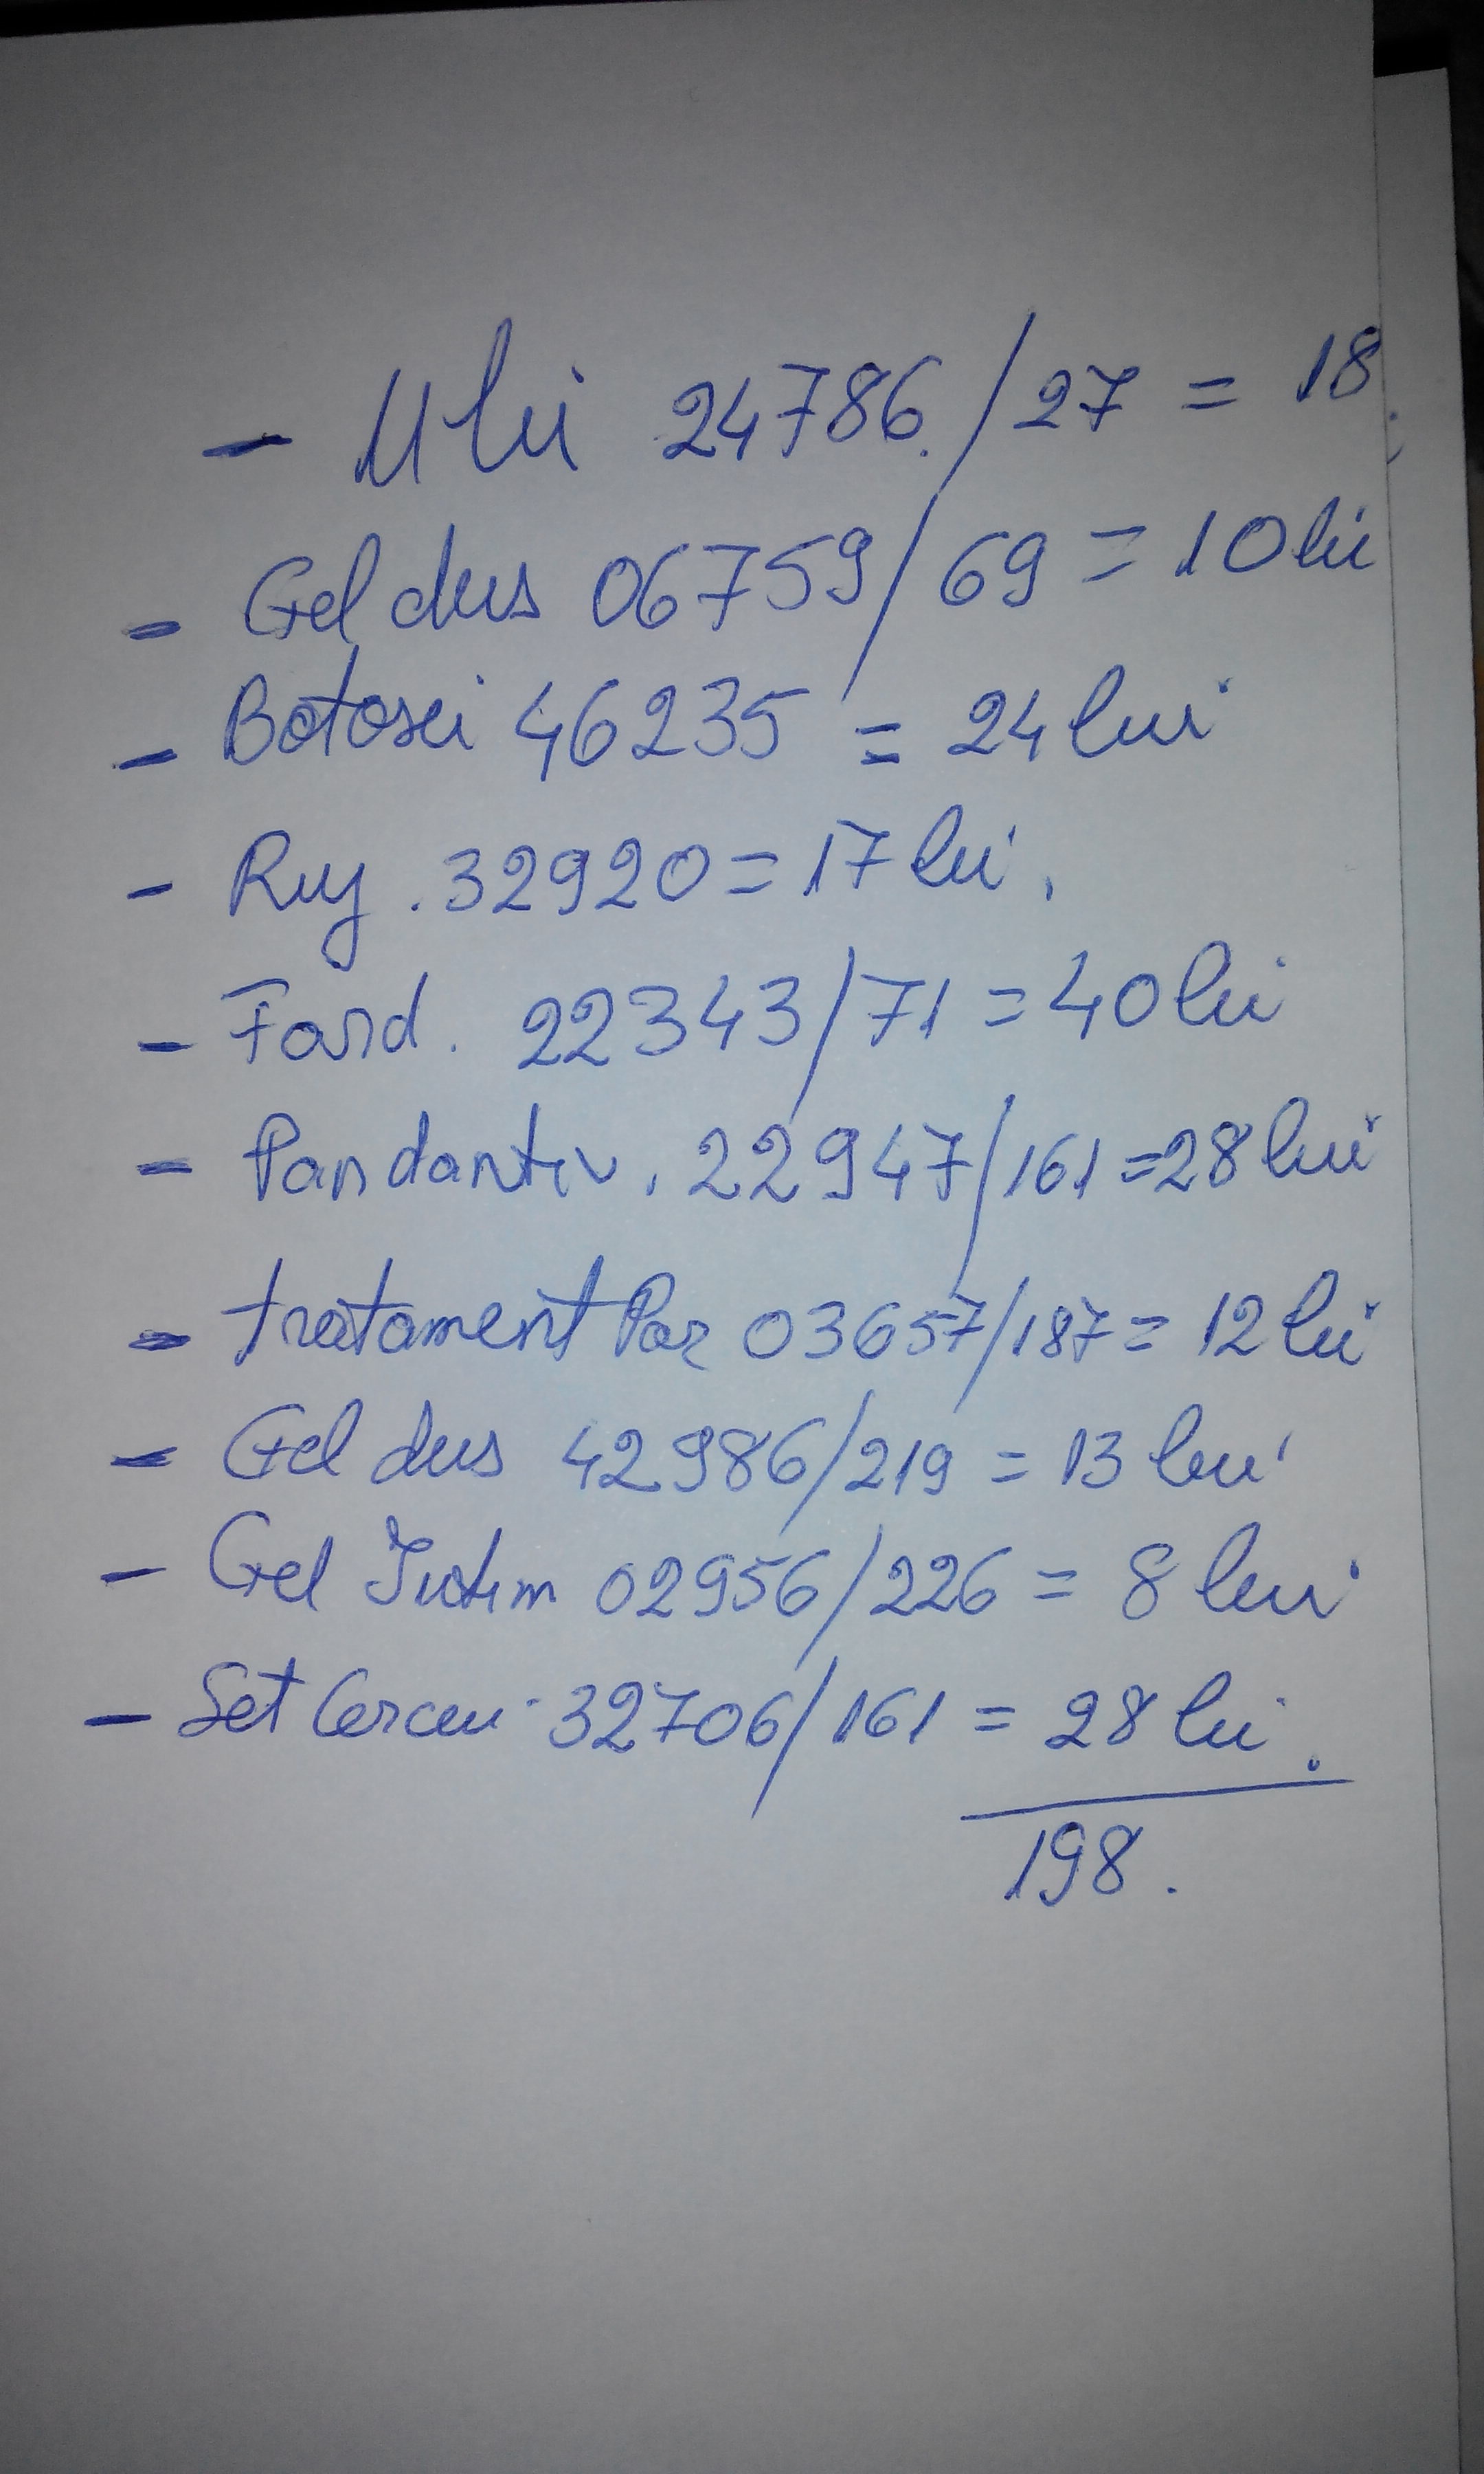 - Ulei 24786./27 = 18
- Gel dus 06759/69 = 10 lei
- Botosei 46235 = 24 lei
- Ruj . 32920 = 17 lei.
- Fard. 22343/71 = 40 lei
- Pandantiv. 22947/161 = 28 lei
- tratament Par 03657/187 = 12 lei
- Gel dus 42986/219 = 13 lei
- Gel Intim 02956/226 = 8 lei
- Set Cercei 32706/161 = 28 lei.
198.